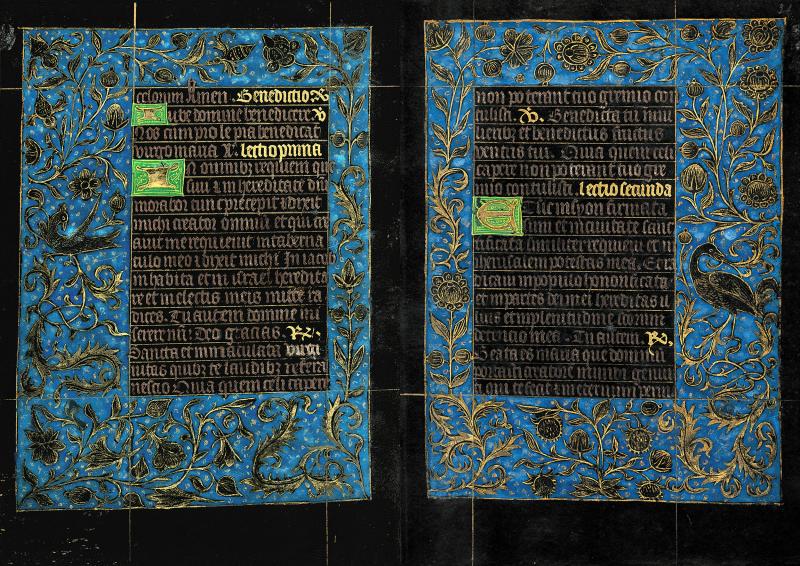 celorum Amen. Benedictio
Iube domne benedicere
Nos cum prole pia benedicat
virgo maria. lectio prima
In omnibus requiem que
sivi et in hereditate dni
morabor tunc precepit et dixit
michi creator omniu et qui cre
avit me requievit in taberna
culo meo et dixit michi In iacob
inhabita et in israel heredita
re et in electis meis mitte ra
dices. Tu autem domine mi
serere nri. Deo gracias. R.
Sancta et immaculata virgi
nitas quibz te laudibz referā
nescio Quia quem celi capere
non poterant tuo gremio con
tulisti. V. Benedicta tu in mu
lieribz et benedictus fructus
ventris tui. Quia quem celi
capere non poterant tuo gre
mio contulisti. lectio secunda
Et sic in syon firmata
sum et in civitate sanc
tificata similiter requievi et in
iherusalem potestas mea. Et ra
dicavi in populo honorificato
et in partes dei mei hereditas il
lius et in plenitudine sanctorum
detentio mea. Tu autem. R.
Beata es maria que dominū
portasti creatorē mundi genui
sti qui te fecit et in eternū permanes